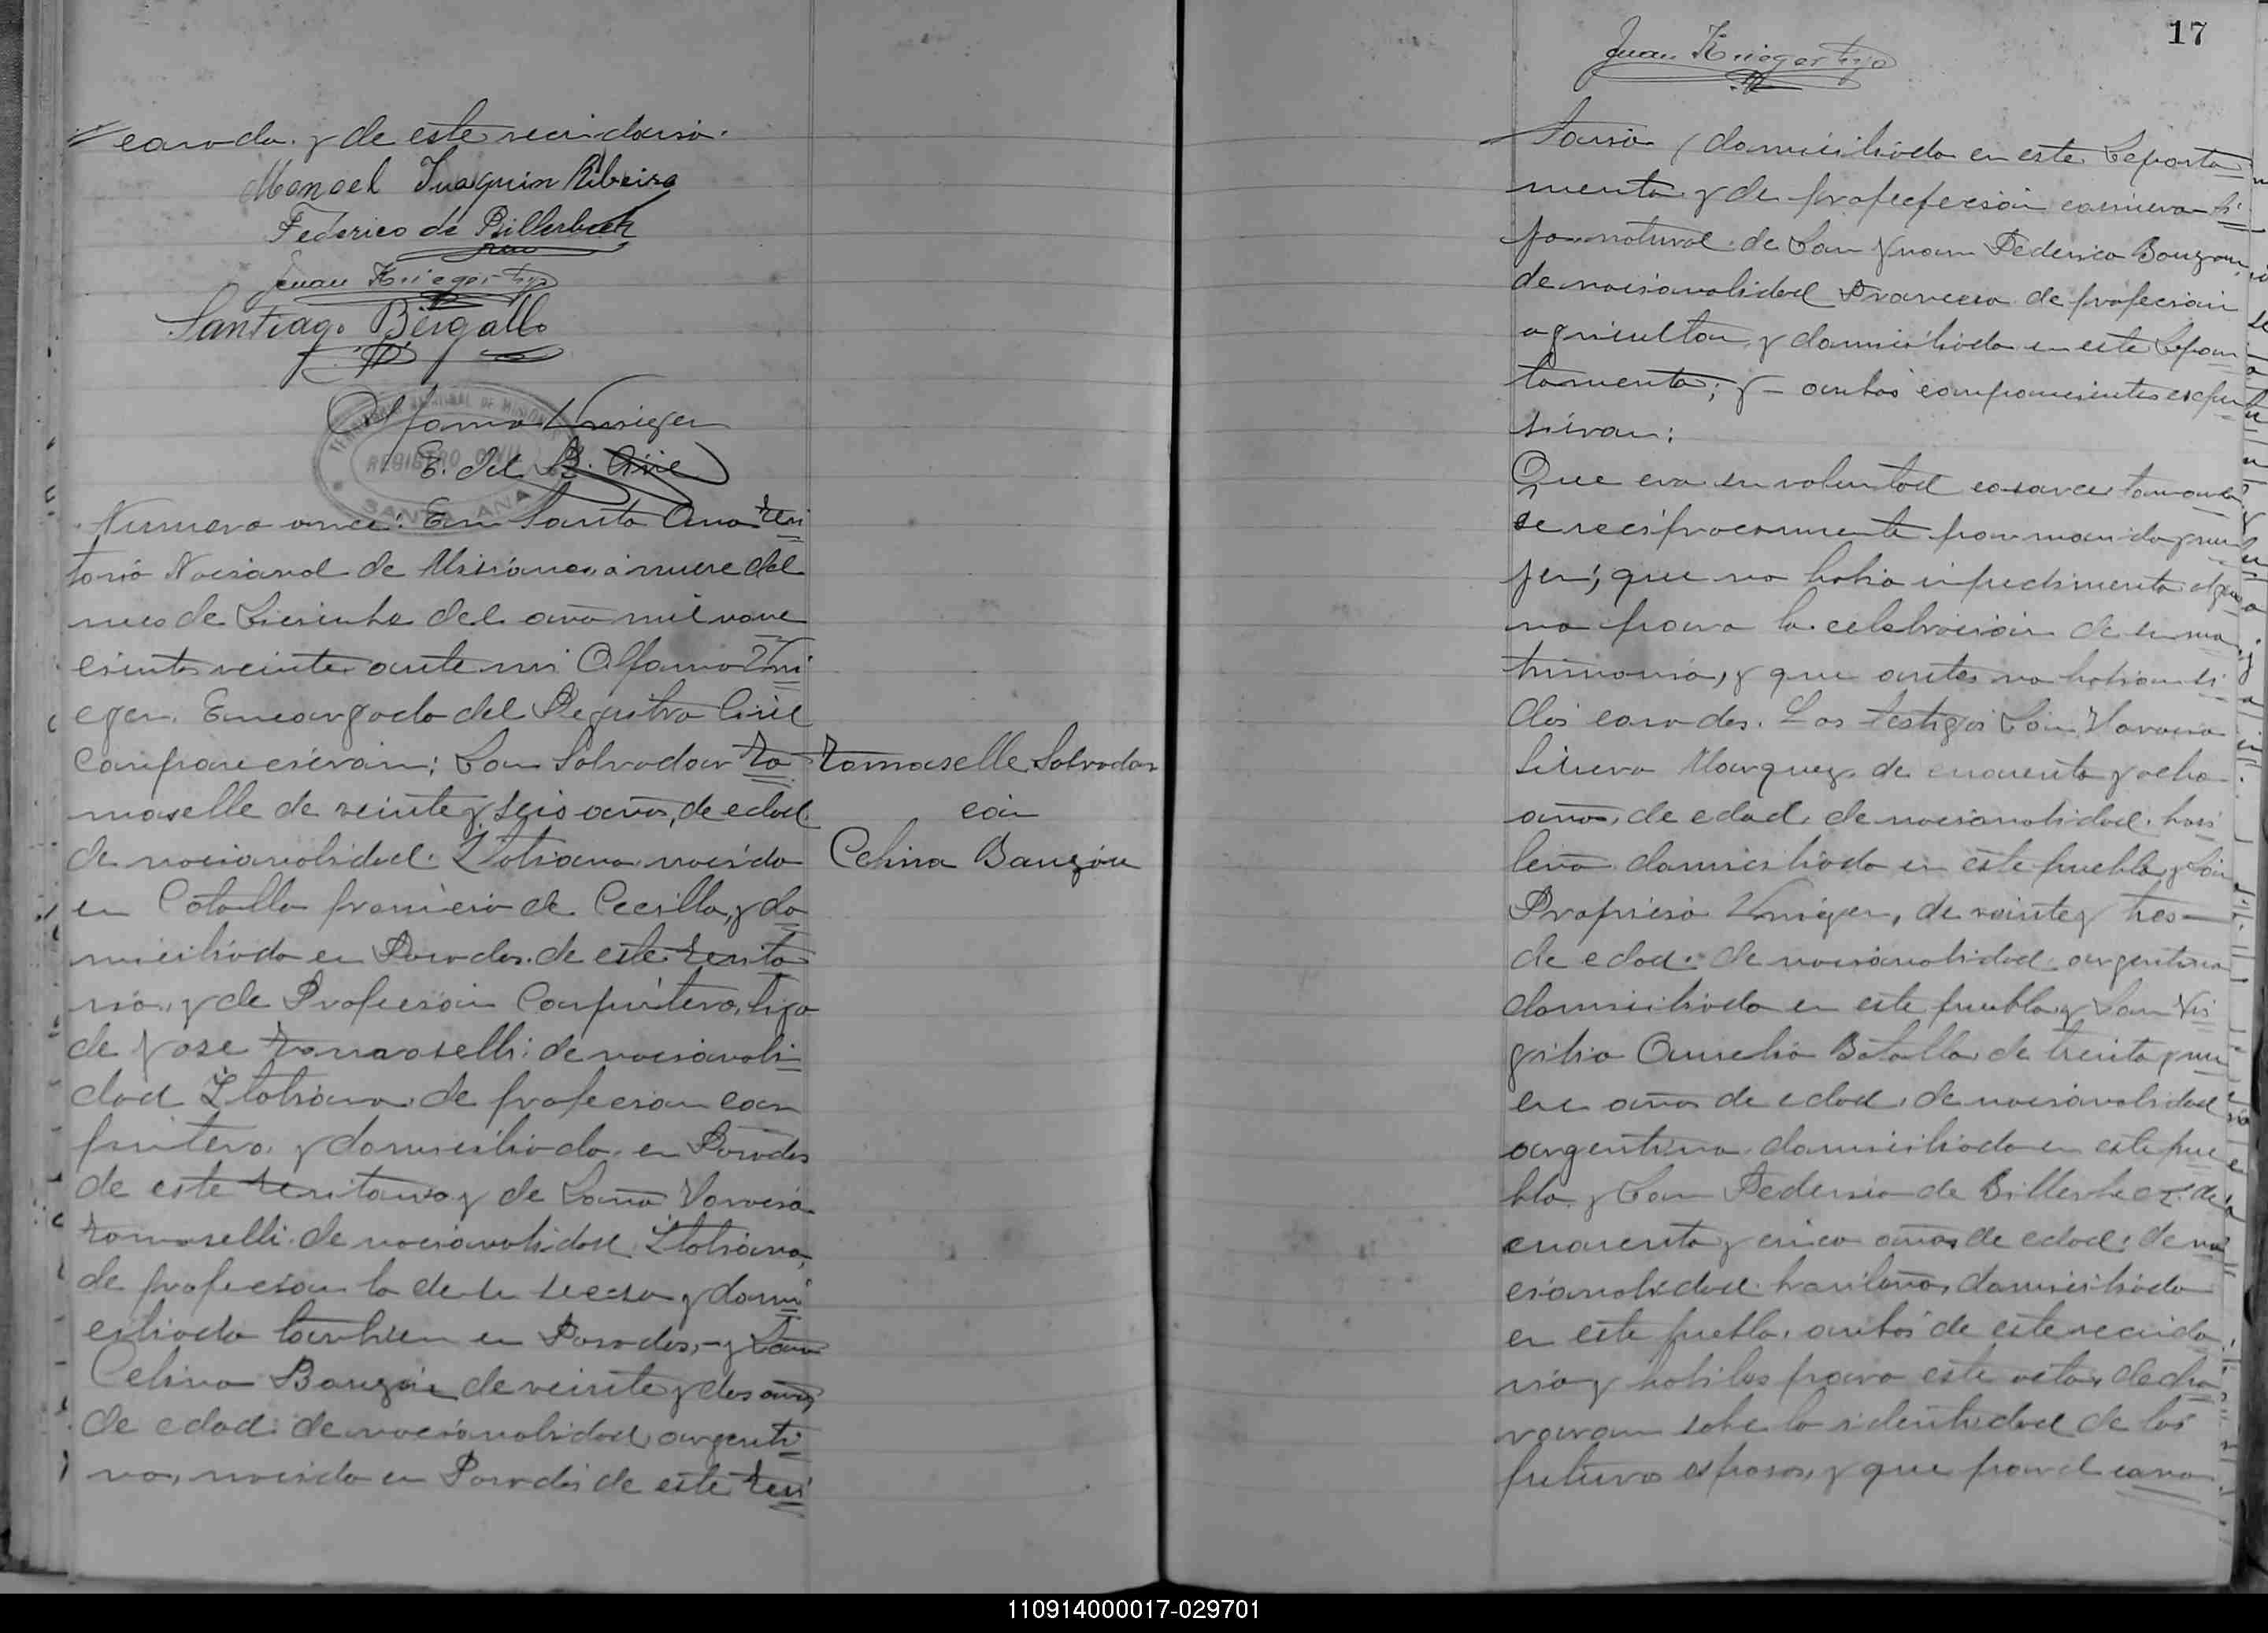 casada y de este vecindario.
Manoel Juaquin Ribeiro
Federico de Billerbeck
Juan Krieger hijo
Santiago Bergallo
TERRITORIO NACIONAL DE MISIONES
REGISTRO CIVIL
SANTA ANA
Krieger
E. del R. Civil
Numero once: En Santa Ana Terri
torio Nacional de Misiones, a nueve del
mes de Diciembre del año mil nove
cientos veinte ante mi Kri
eger. Encargado del Registro Civil
Comparecieron: Don Salvador To
maselle de veinte y seis años, de edad
de nacionalidad Italiano nacido
en provincia de y do
miciliado en Posadas de este territo
rio, y de Profesion Carpintero, hijo
de Jose Tomaselli: de nacionali
dad Italiana de profesion car
pintero y domiciliado en Posadas
de este territorio y de Doña
Tomaselli de nacionalidad Italiana,
de profesion la de su sexo y domi
ciliada tambien en Posadas, y Doña
Celina Bauzón de veinte y dos años
de edad de nacionalidad argenti
na, nacida en Posadas de este terri
Tomaselle Salvador
con
Celina Bauzón
17
Juan Krieger hijo
torio y domiciliada en este Departa
mento y de profesion hi
ja natural de Don Juan Federico Bauzon,
de nacionalidad Francesa de profesion
agricultor y domiciliado en este Depar
tamento; y ambos comparecientes expu
sieron:
Que era su voluntad casarse tomando
se reciprocamente por marido y mu
jer; que no habia impedimento algu
no para la celebracion de su ma
trimonio, y que antes no habian si
dos casados. Los testigos Don
Marquez de cuarenta y ocho
años, de edad, de nacionalidad brasi
lera domiciliado en este pueblo y Don
Krieger, de veinte y tres
de edad: de nacionalidad argentina
domiciliado en este pueblo y Don Vir
gilio Aurelio de treinta y nu
eve años de edad, de nacionalidad
argentina domiciliado en este pue
blo y Don Federico de Billerbeck de
cuarenta y cinco años de edad: de na
cionalidad domiciliado
en este pueblo, ambos de este vecinda
rio y habiles para este acto, decla
raron sobre la identidad de los
futuros esposos, y que por el cono
110914000017-029701